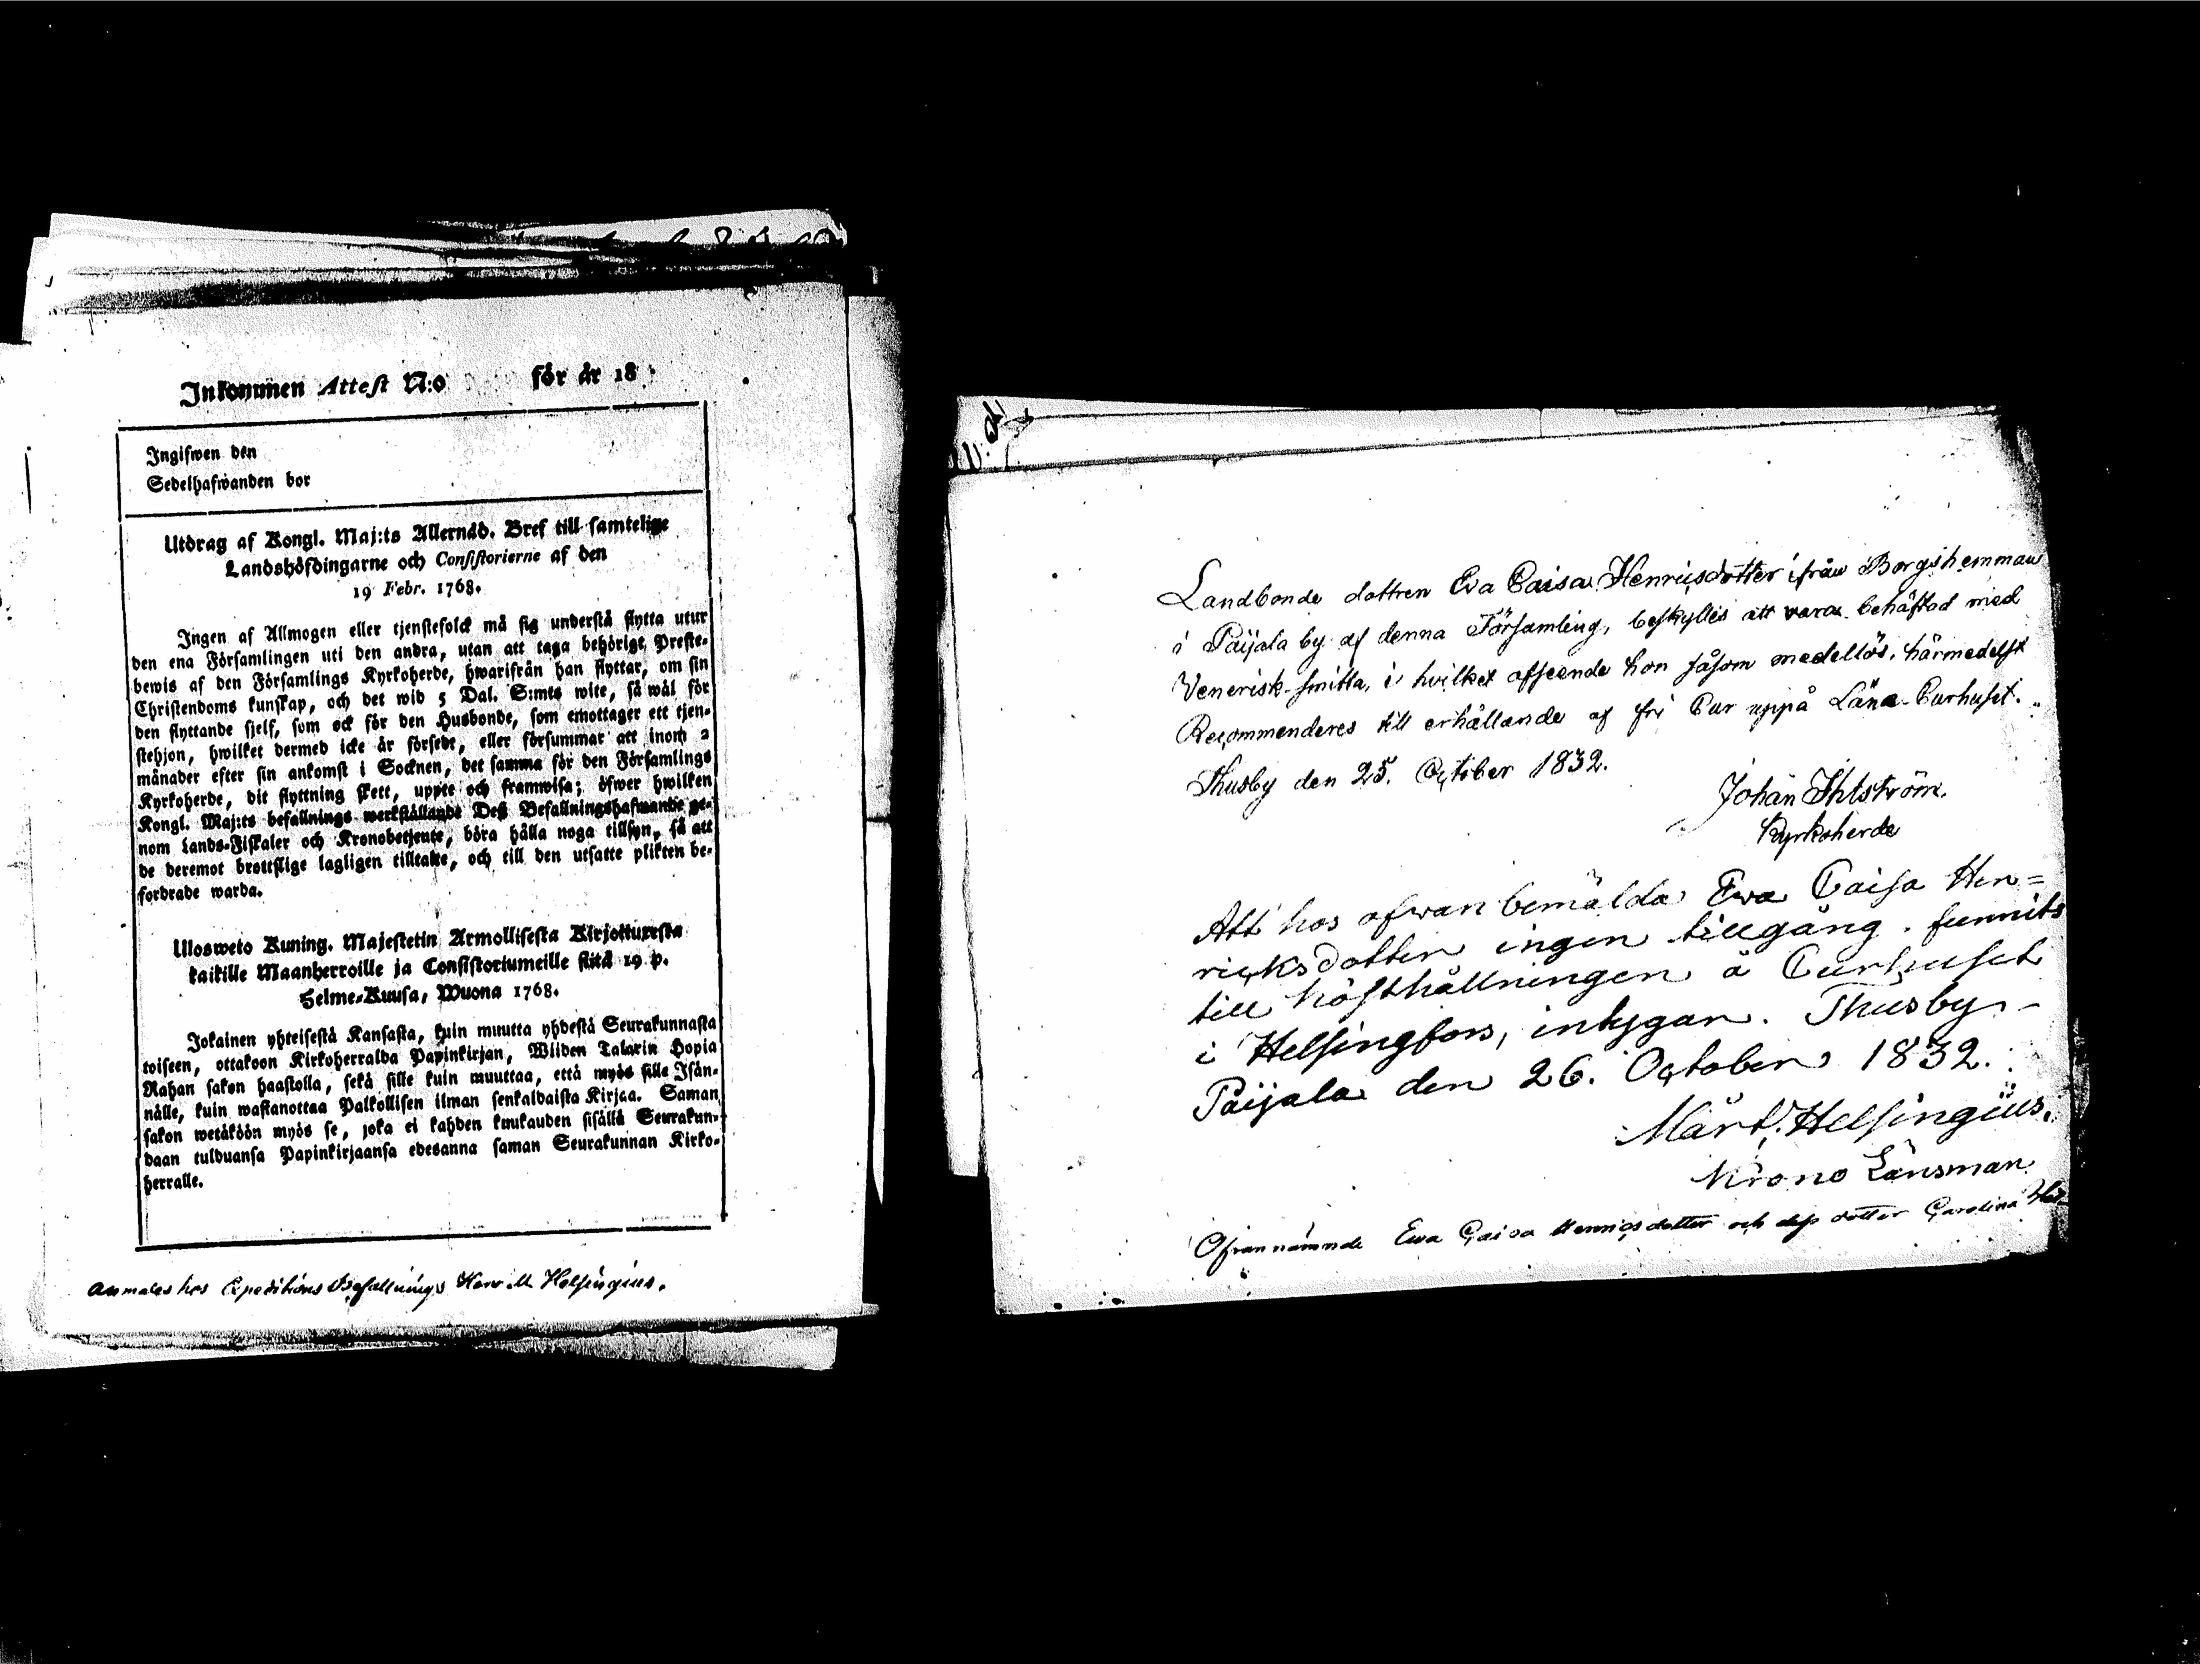 Inkommen Attest N:o för år 18
Ingifwen den
Sedelhafwanden bor
Utdrag af Kongl. Maj:ts Allernåd. Bref till samtelige
Landshöfdingarne och Consistorierne af den
19 Febr. 1768.
Ingen af Allmogen eller tjenstefolck må sig understå flytta utur
den ena Församlingen uti den andra, utan att taga behörigt Preste-
bewis af den Församlings Kyrkoherde, hwarifrån han flyttar, om sin
Christendoms kunskap, och det wid 5 Dal. S:mts wite, så wäl för
den flyttande sjelf, som ock för den Husbonde, som emottager ett tjen-
stehjon, hwilket dermed icke är försedt, eller försummar att inom 2
månader efter sin ankomst i Socknen, det samma för den Församlings
Kyrkoherde, dit flyttning skett, uppte och framwisa; öfwer hwilken
Kongl. Maj:ts befallnings werkställande Deß Befallningshafwande ge-
nom Lands-Fiskaler och Kronobetjente, böra hålla noga tillsyn, så att
de deremot brottslige lagligen tilltalte, och till den utsatte plikten be-
fordrade warda.
Ulosweto Kuning. Majestetin Armollisesta Kirjoituxesta
kaikille Maanherroille ja Consistoriumeille siitä 19 p.
Helme-Kuusa, Wuona 1768.
Jokainen yhteisestä Kansasta, kuin muutta yhdestä Seurakunnasta
toiseen, ottakoon Kirkoherralda Papinkirjan, Wiiden Talarin Hopia
Rahan sakon haastolla, sekä sille kuin muuttaa, että myös sille Isän-
nälle, kuin wastanottaa Palkollisen ilman senkaldaista Kirjaa. Saman
sakon wetäköön myös se, joka ei kahden kuukauden sisällä Seurakun-
daan tulduansa Papinkirjaansa edesanna saman Seurakunnan Kirko-
herralle.
Anmäles hos Expeditions Befallnings Herr M Helsingius.
Landbonde dottren Eva Caisa Henricsdotter ifrån Borgshemman
i Paijala by af denna Församling, beskylles att vara behäftad med
Venerisk-smitta, i hvilket afseende hon såsom medellös, härmedelst
Recommenderes till erhållande af fri Cur uppå Läns-Curhuset.
Thusby den 25. October 1832.
Johan Ihlström.
Kyrkoherde
Att hos ofwanbemälda Ewa Caisa Hen=
ricksdotter ingen tillgång funnits
till kosthållningen å Curhuset
i Helsingfors, intygar. Thusby
Paijala den 26. October 1832.
Märt. Helsingius.
Krono Länsman
Ofvannämnde Ewa Caisa Henricsdotter och dess dotter Carolina